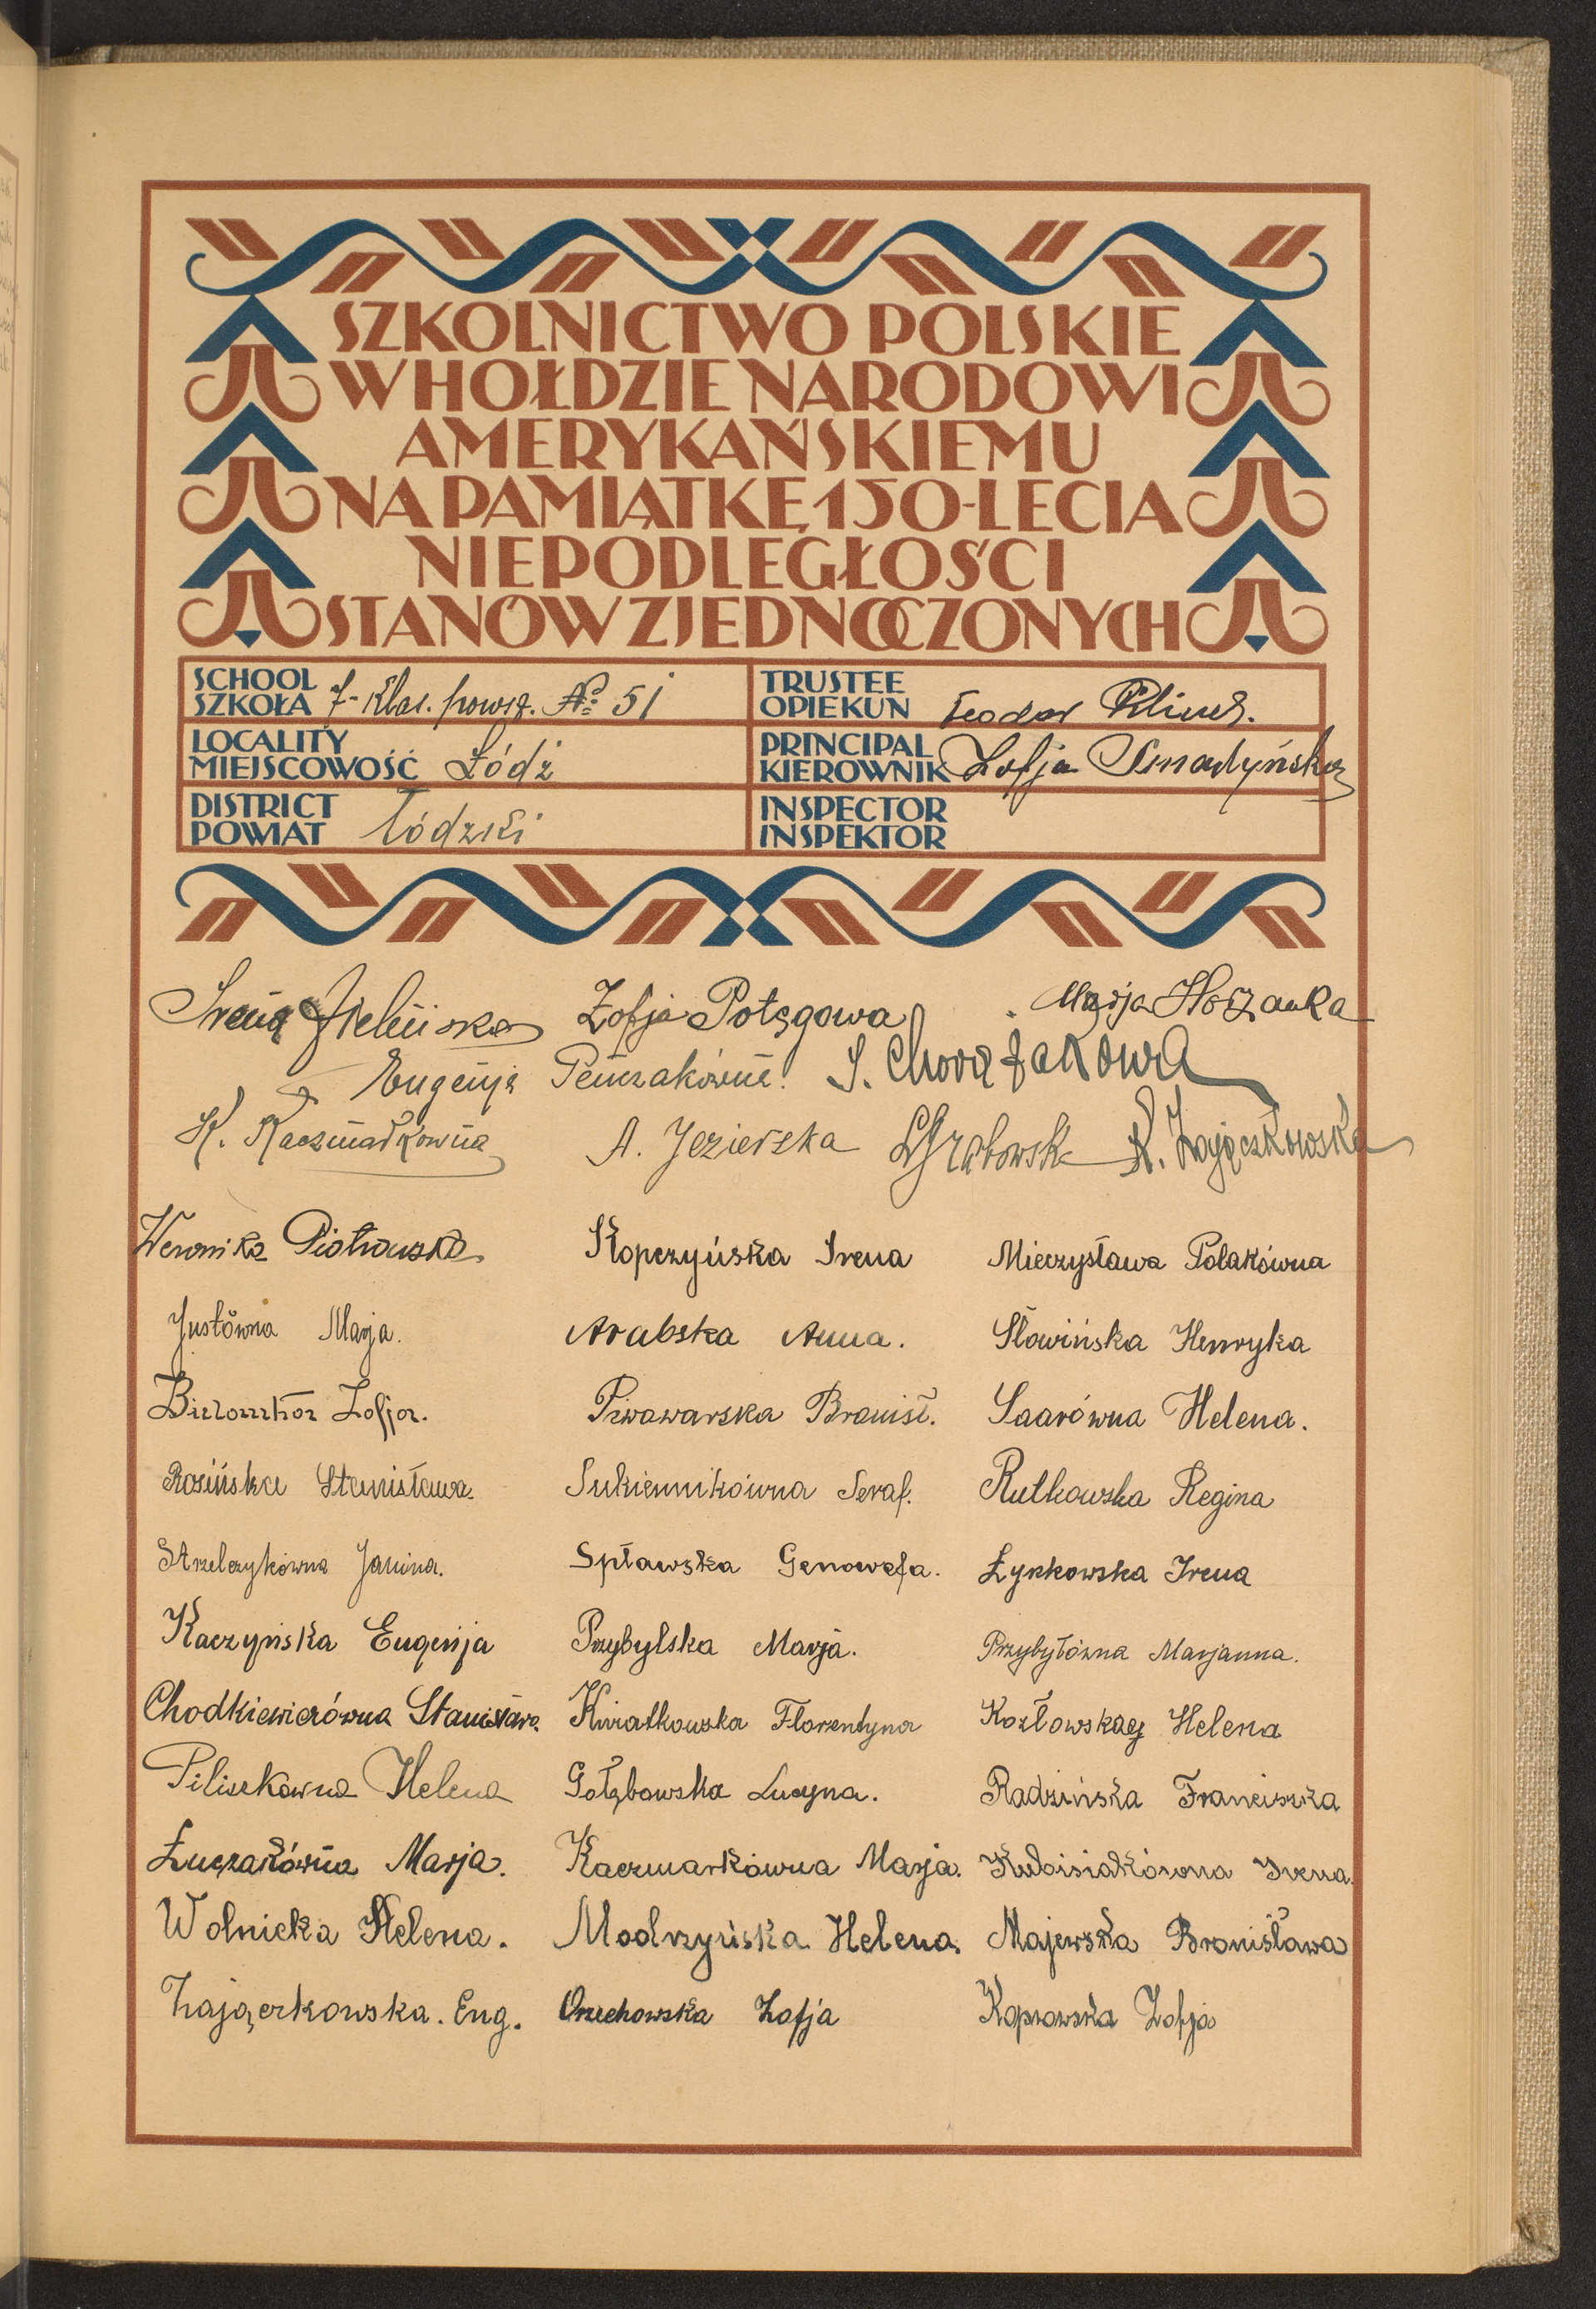 SZKOLNICTWO POLSKIE
W HOŁDZIE NARODOWI
AMERYKAŃSKIEMU
NA PAMIĄTKĘ 150-LECIA
NIEPODLEGŁOŚCI
STANÓW ZJEDNOCZONYCH
SCHOOL
SZKOŁA 7-klas. powsz. № 51
TRUSTEE
OPIEKUN Teodor
LOCALITY
MIEJSCOWOŚĆ Łódź
PRINCIPAL
KIEROWNIK Zofja
DISTRICT
POWIAT Łódzki
INSPECTOR
INSPEKTOR
Irena Zielińska Zofja Potęgowa Marja
Eugenja Pemzakówna. S. Chorążakowa
K. Kaczmarkówna A. Jezierska Grabowska K. Zajączkowska
Weronika Piotrowska Kopczyńska Irena Mieczysława Polakówna
Justówna Marja. Arabska Anna. Słowińska Henryka
Zofja. Piwawarska Bronisł. Saarówna Helena.
Rosińska Stanisława. Sukiennikówna Seraf. Rutkowska Regina
Strzelczykówna Janina. Spławska Genowefa. Łynkowska Irena
Kaczyńska Eugenja Przybylska Marja. Przybyłówna Marjanna.
Chodkiewiczówna Stanisława. Kwiatkowska Florentyna Kozłowska Helena
Piliszkówna Helena Gołębowska Lucyna. Radzińska Franciszka
Łuczakówna Marja. Kaczmarkówna Marja. Kubisiakówna Irena.
Wolnicka Helena. Modrzyńska Helena. Majewska Bronisława
Zajączkowska. Eug. Orzechowska Zofja Koprowska Zofja